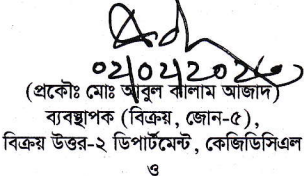 ০২/০২/২০২৬
(প্রকৌঃ মোঃ আবুল কালাম আজাদ)
ব্যবস্থাপক (বিক্রয়, জোন-৫),
বিক্রয় উত্তর-২ ডিপার্টমেন্ট, কেজিডিসিএল
ও